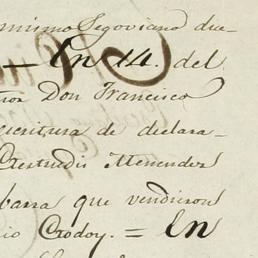 mismo Segoviano due-
— En 14. del
ñor Don Francisco
escritura de declara-
Gertrudis Menendez
barra que vendieron
io Crodoy. = En